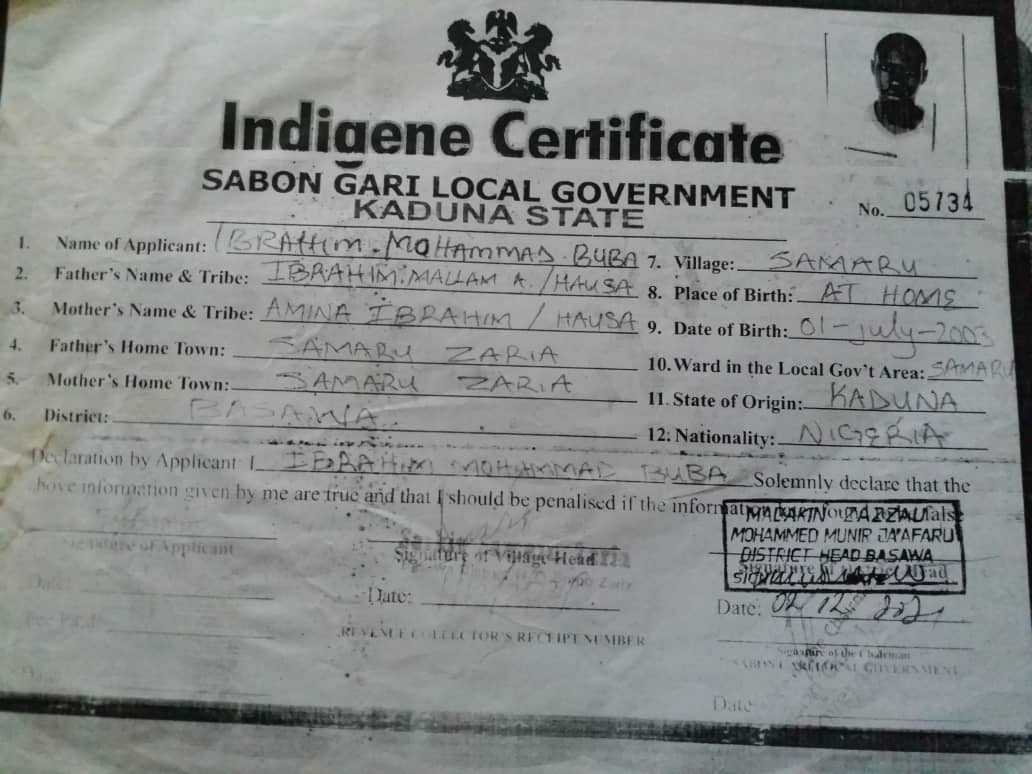 Indigene Certificate
SABON GARI LOCAL GOVERNMENT
KADUNA STATE
No. 05734
1. Name of Applicant: IBRAHIM. MOHAMMAD BUBA
2. Father's Name & Tribe: IBRAHIM. MALLAM A. /HAUSA
3. Mother's Name & Tribe: AMINA IBRAHIM / HAUSA
4. Father's Home Town: SAMARU ZARIA
5. Mother's Home Town: SAMARU ZARIA
6. District: BASAWA
7. Village: SAMARU
8. Place of Birth: AT HOME
9. Date of Birth: 01-July-2003
10. Ward in the Local Gov't Area: SAMARU
11. State of Origin: KADUNA
12: Nationality: NIGERIA
Declaration by Applicant I IBRAHIM MOHAMMAD BUBA Solemnly declare that the
above information given by me are true and that I should be penalised if the information false
Signature of Applicant
Signature of Village Head
Date:
REVENUE COLLECTOR'S RECEIPT NUMBER
MADAKIN ZAZZAU
MOHAMMED MUNIR JA'AFARU
DISTRICT HEAD BASAWA
Head
Date: 02/12/2021
Signature of the Chairman
SABON GARI LOCAL GOVERNMENT
Date